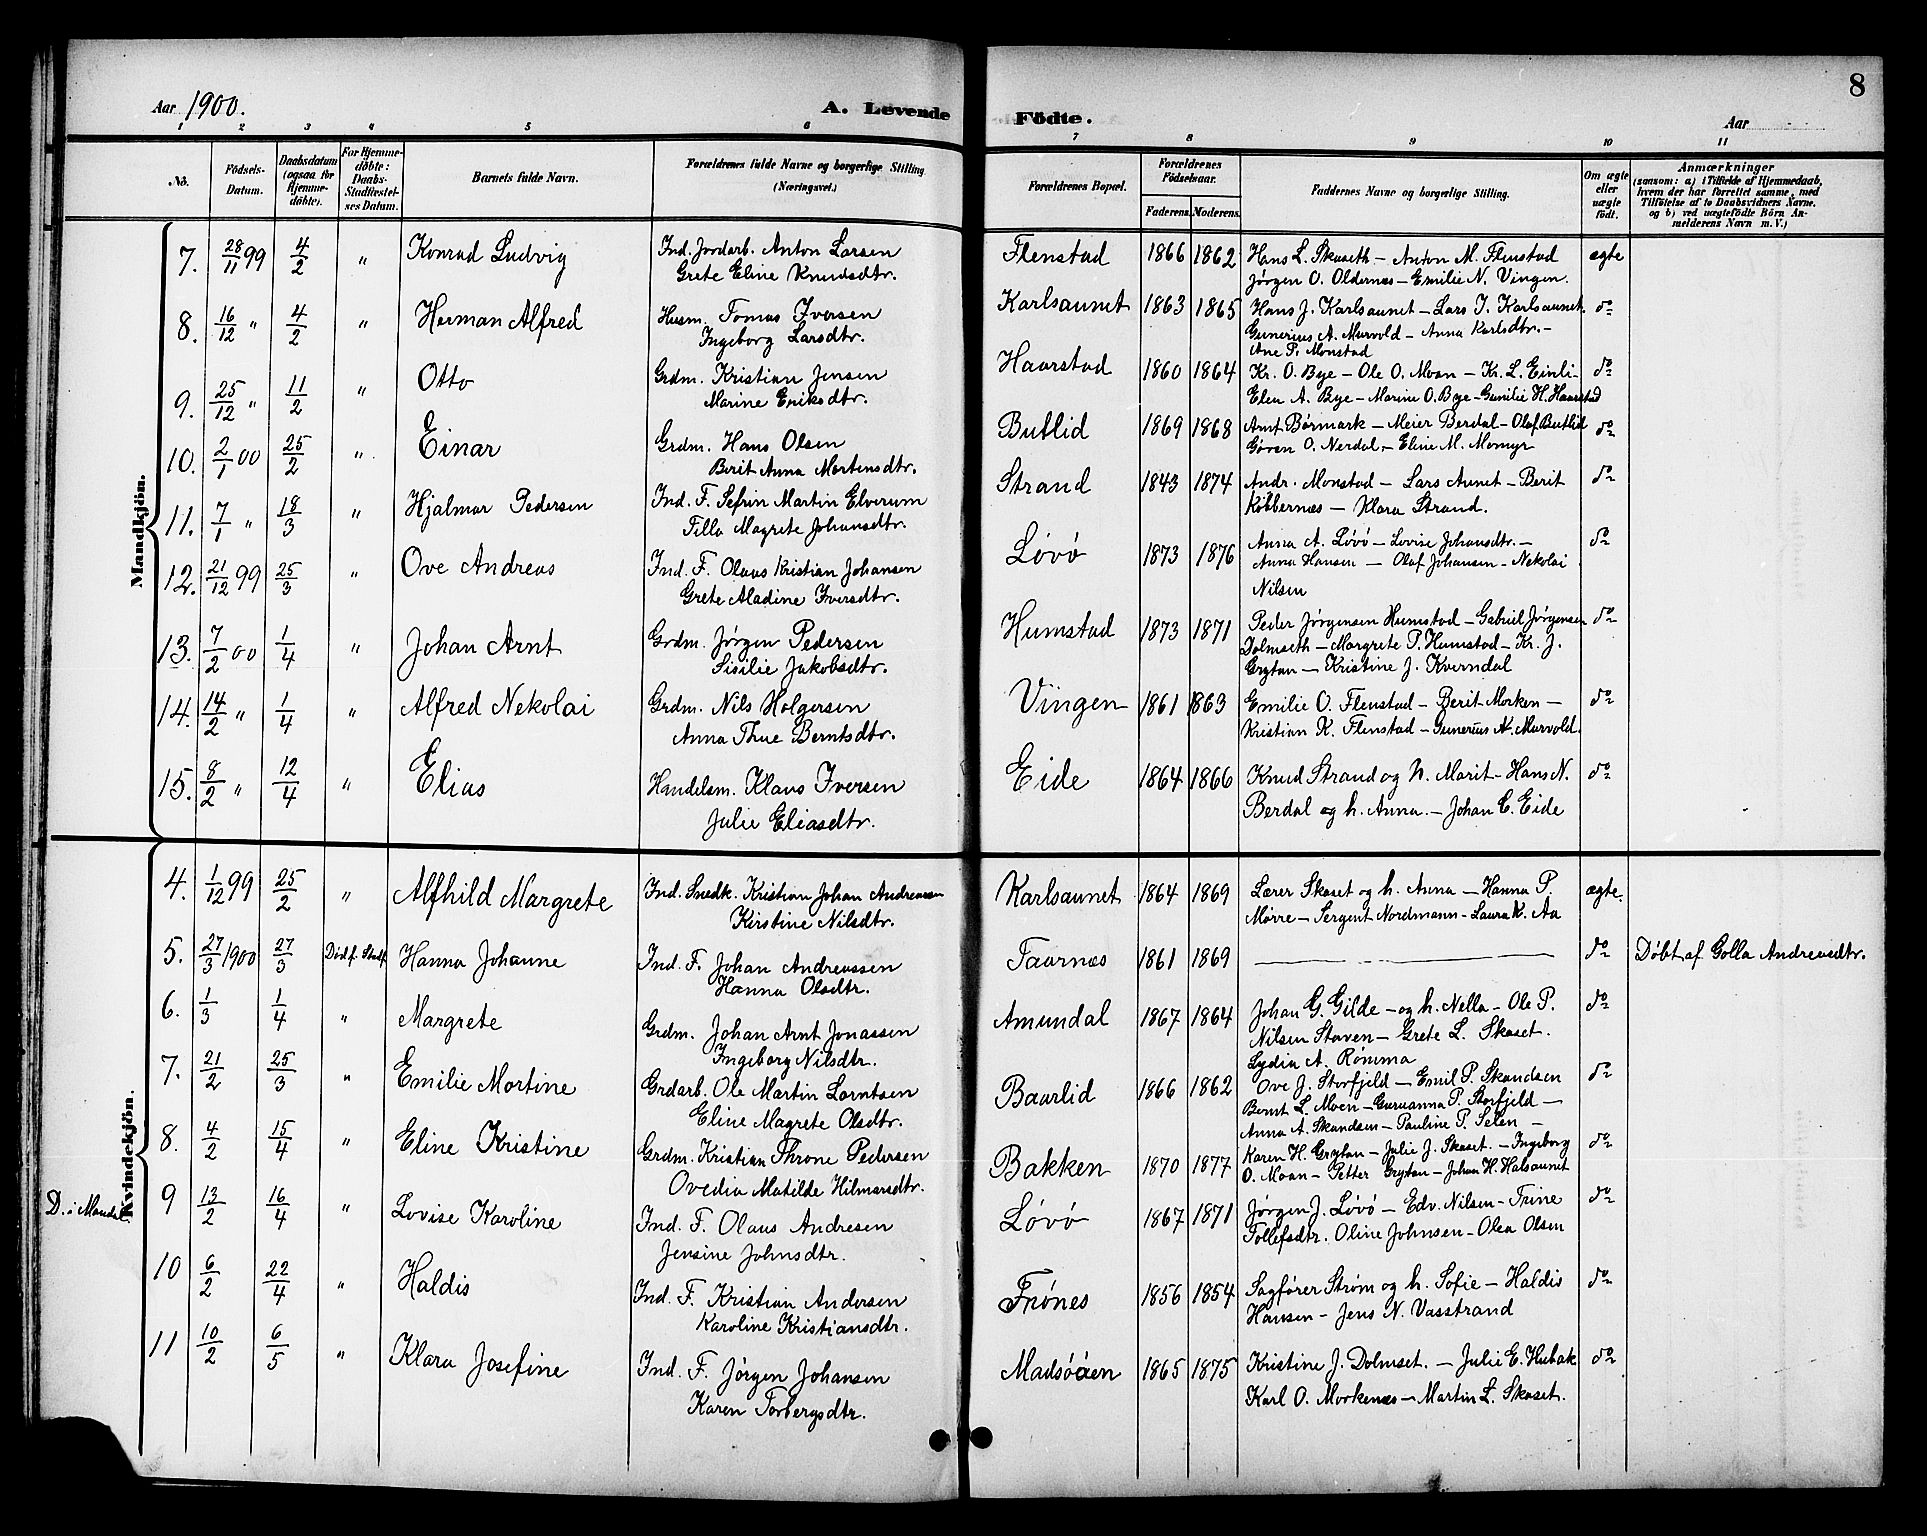 8
Aar 1900. A. Levende Födte. Aar
1 2 3 4 5 6 7 8 9 10 11
No. Födsels-Datum. Daabsdatum (ogsaa for Hjemmedöbte). For Hjemmedöbte: Daabs-Stadfæstelses Datum. Barnets fulde Navn. Forældrenes fulde Navne og borgerlige Stilling (Næringsvei.) Forældrenes Bopæl. Forældrenes Födselsaar. Faderens. Moderens. Faddernes Navne og borgerlige Stilling. Om ægte eller uægte födt. Anmærkninger (saasom: a) i Tilfælde af Hjemmedaab, hvem der har forrettet samme, med Tilföielse af to Daabsvidners Navne, og b) ved uægtefödte Börn Anmelderens Navn m. V.)
Mandkjön.
7. 28/11 99 4/2 " Konrad Ludvig Ind. Jordarb. Anton Larsen Flenstad 1866 1862 Hans L. Skaseth - Anton M. Flenstad ægte
Grete Eline Knudsdtr. Jörgen O. Oldernæs - Emilie N. Vingen
8. 16/12 " 4/2 " Herman Alfred Husm. Tomas Iversen Karlsaunet 1863 1865 Hans J. Karlsaunet - Lars J. Karlsaunet do
Ingeborg Larsdtr. Gunerius A. Murvold - Anna Karlsdtr. -
Ane P. Monstad
9. 25/12 " 11/2 " Otto Grdm. Kristian Jensen Haarstad 1860 1864 Kr. O. Bye - Ole O. Moan - Kr. L. Einli - do
Marine Eriksdtr. Elen A. Bye - Marine O. Bye - Gunilie H. Haarstad
10. 2/1 00 25/2 " Einar Grdm. Hans Olsen Butlid 1869 1868 Arnt Børmark - Meier Berdal - Olaf Butlid do
Berit Anna Mortensdtr. Gøran O. Nerdal - Eline M. Momyr
11. 7/1 " 18/3 " Hjalmar Pedersen Ind. F. Sefrin Martin Elverum Strand 1843 1874 Andr. Monstad - Lars Aunet - Berit do
Tilla Magrete Johansdtr. Købbernæs - Klara Strand.
12. 21/12 99 25/3 " Ove Andreas Ind. F. Olaus Kristian Johansen Løvø 1873 1876 Anna A. Løvø - Lovise Johansdtr. - do
Grete Aladine Iversdtr. Anna Hansen - Olaf Johansen - Nekolai
Nilsen
13. 7/2 00 1/4 " Johan Arnt Grdm. Jørgen Pedersen Humstad 1873 1871 Peder Jørgensen Humstad - Gabriel Jørgensen do
Sisilie Jakobsdtr. Dolmseth - Margrete P. Humstad - Kr. J.
Grytan - Kristine J. Kverndal
14. 14/2 " 1/4 " Alfred Nekolai Grdm. Nils Holgersen Vingen 1861 1863 Emilie O. Flenstad - Berit Morken - do
Anna Thue Berntsdtr. Kristian K. Flenstad - Gunerius A. Murvold.
15. 8/2 " 12/4 " Elias Handelsm. Klaus Iversen Eide 1864 1866 Knud Strand og h. Marit - Hans N. do
Julie Eliasdtr. Berdal og h. Anna. - Johan C. Eide
Kvindekjön.
4. 1/12 99 25/2 " Alfhild Margrete Ind. Snedk. Kristian Johan Andreasen Karlsaunet 1864 1869 Lærer Skaset og h. Anna - Hanna P. ægte.
Kirstine Nilsdtr. Mørre - Sergent Nordmann - Laura K. Aa
5. 27/3 1900 27/3 Død f. Stadf. Hanna Johanne Ind. F. Johan Andreassen Taarnæs 1861 1869 do Døbt af Golla Andreasdtr.
Hanna Olsdtr.
6. 1/3 1/4 " Margrete Grdm. Johan Arnt Jonassen Amundal 1867 1864 Johan G. Gilde - og h. Nella - Ole P. do
Ingeborg Nilsdtr. Nilsen Staven - Grete L. Skaset.
Lydia A. Rømma
7. 21/2 25/3 " Emilie Mortine Grdarb. Ole Martin Lorntsen Baarlid 1866 1862 Ove J. Storfjeld - Emil P. Skandsen do
Eline Magrete Olsdtr. Bernt L. Moen - Guruanna P. Storfjeld -
Anna A. Skandsen - Pauline P. Selen -
8. 4/2 15/4 " Eline Kristine Grdm. Kristian Throne Pedersen Bakken 1870 1877 Karen H. Grytan - Julie J. Skaset. - Ingeborg do
Ovedia Matilde Hilmarsdtr. O. Moan - Petter Grytan - Johan H. Halsaunet
D. i Mandal 9 13/2 16/4 " Lovise Karoline Ind. F. Olaus Andresen Løvø 1867 1871 Jørgen J. Løvø - Edv. Nilsen - Trine do
Jensine Johnsdtr. Tollefsdtr. Oline Johnsen - Olea Olsen
10 6/2 22/4 " Haldis Ind. F. Kristian Andersen Frønes 1856 1854 Sagfører Strøm og h. Sofie - Haldis do
Karoline Kristiansdtr. Hansen - Jens N. Vasstrand
11 10/2 6/5 " Klara Josefine Ind. F. Jørgen Johansen Madsøøen 1865 1875 Kristine J. Dolmset. - Julie E. Hubak do
Karen Torbergsdtr. Karl O. Morkenæs - Martin L. Skaset.